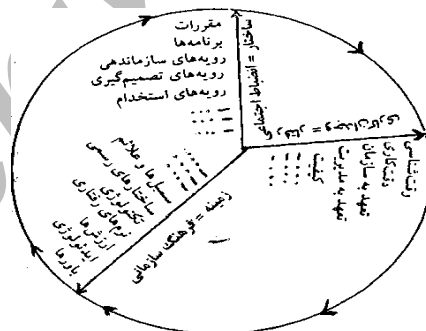 مقررات
برنامه‌ها
رویه‌های سازماندهی
رویه‌های تصمیم‌گیری
رویه‌های استخدام
ساختار = انضباط اجتماعی
رفتار = وجدان کاری
وقت‌شناسی
دقت‌کاری
تعهد به سازمان
تعهد به مدیریت
کیفیت
زمینه = فرهنگ سازمانی
سمبل‌ها و علائم
ساختارهای رسمی
تکنولوژی
نرم‌های رفتاری
ارزش‌ها
ایدئولوژی
باورها